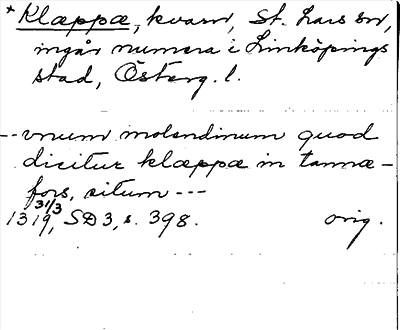 * Klæppa, kvarn, St. Lars sn,
ingår numera i Linköpings
stad, Österg. l.
-- vnum molendinum quod
dicitur klæppæ in tannæ-
fors, situm ---
1319 31/3, SD 3, s. 398. orig.